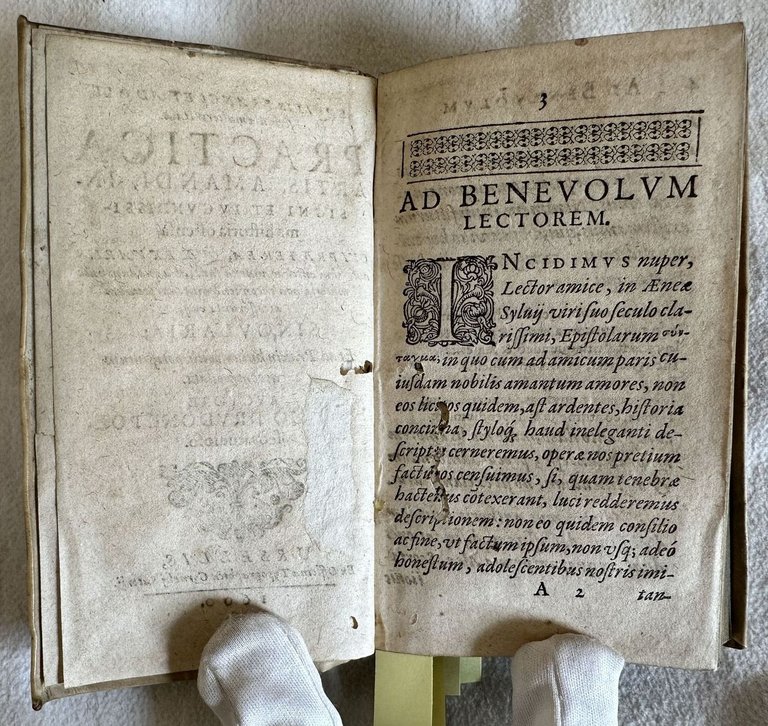 PRACTICA
ARTIS AMANDI, IN-
SIGNI ET IVCVNDISSI-
ma historia
VRSELLIS,
3
AD BENEVOLVM
LECTOREM.
INCIDIMVS nuper,
Lector amice, in Æneæ
Syluij viri suo seculo cla-
rissimi, Epistolarum σύν-
ταγμα, in quo cum ad amicum paris cu-
iusdam nobilis amantum amores, non
eos licitos quidem, ast ardentes, historia
concinna, styloq́; haud ineleganti de-
scriptos cerneremus, operæ nos pretium
facturos censuimus, si, quam tenebræ
hactenus cōtexerant, luci redderemus
descriptionem: non eo quidem consilio
ac fine, vt factum ipsum, non vsq; adeó
honestum, adolescentibus nostris imi-
A 2 tan-